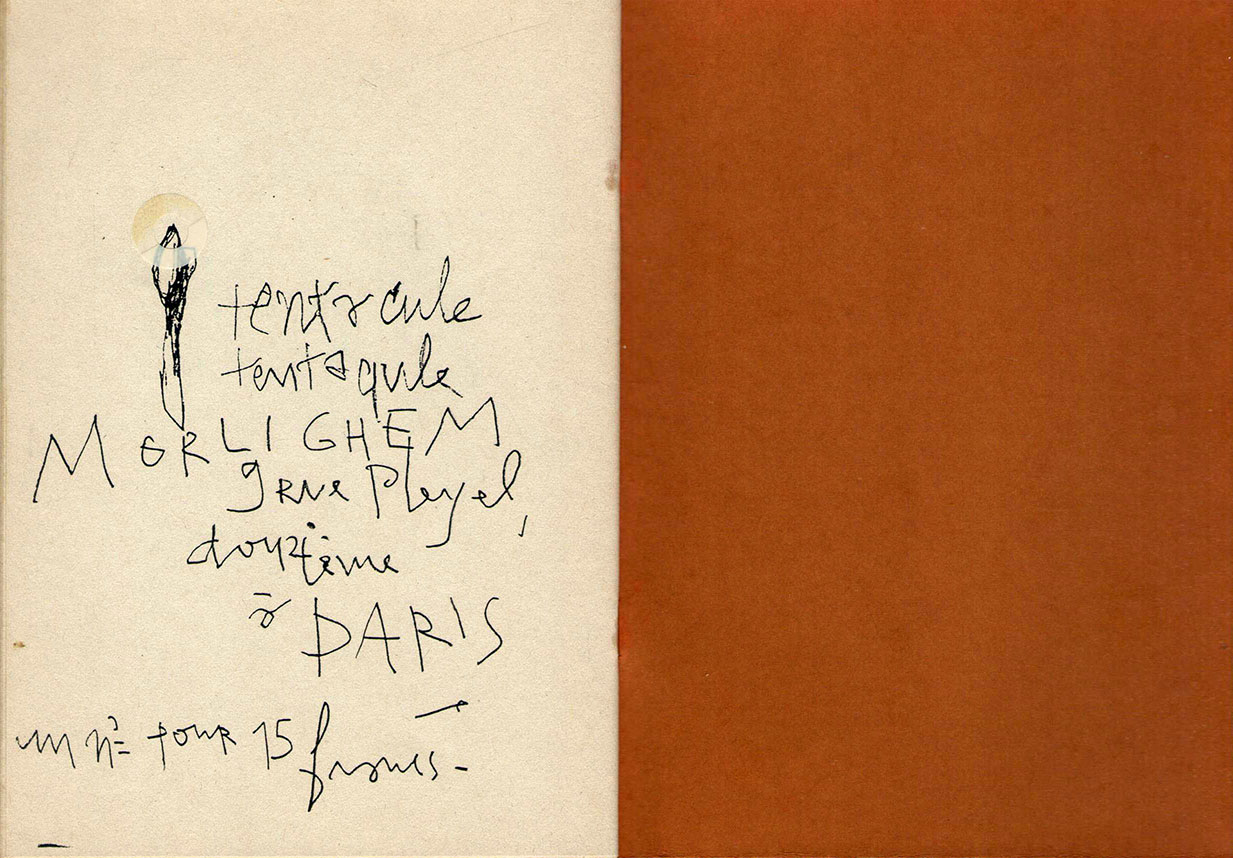 tentacule
tentaqule
MORLIGHEM
9 rue Pleyel,
douzième
à PARIS
un n° pour 15 francs -